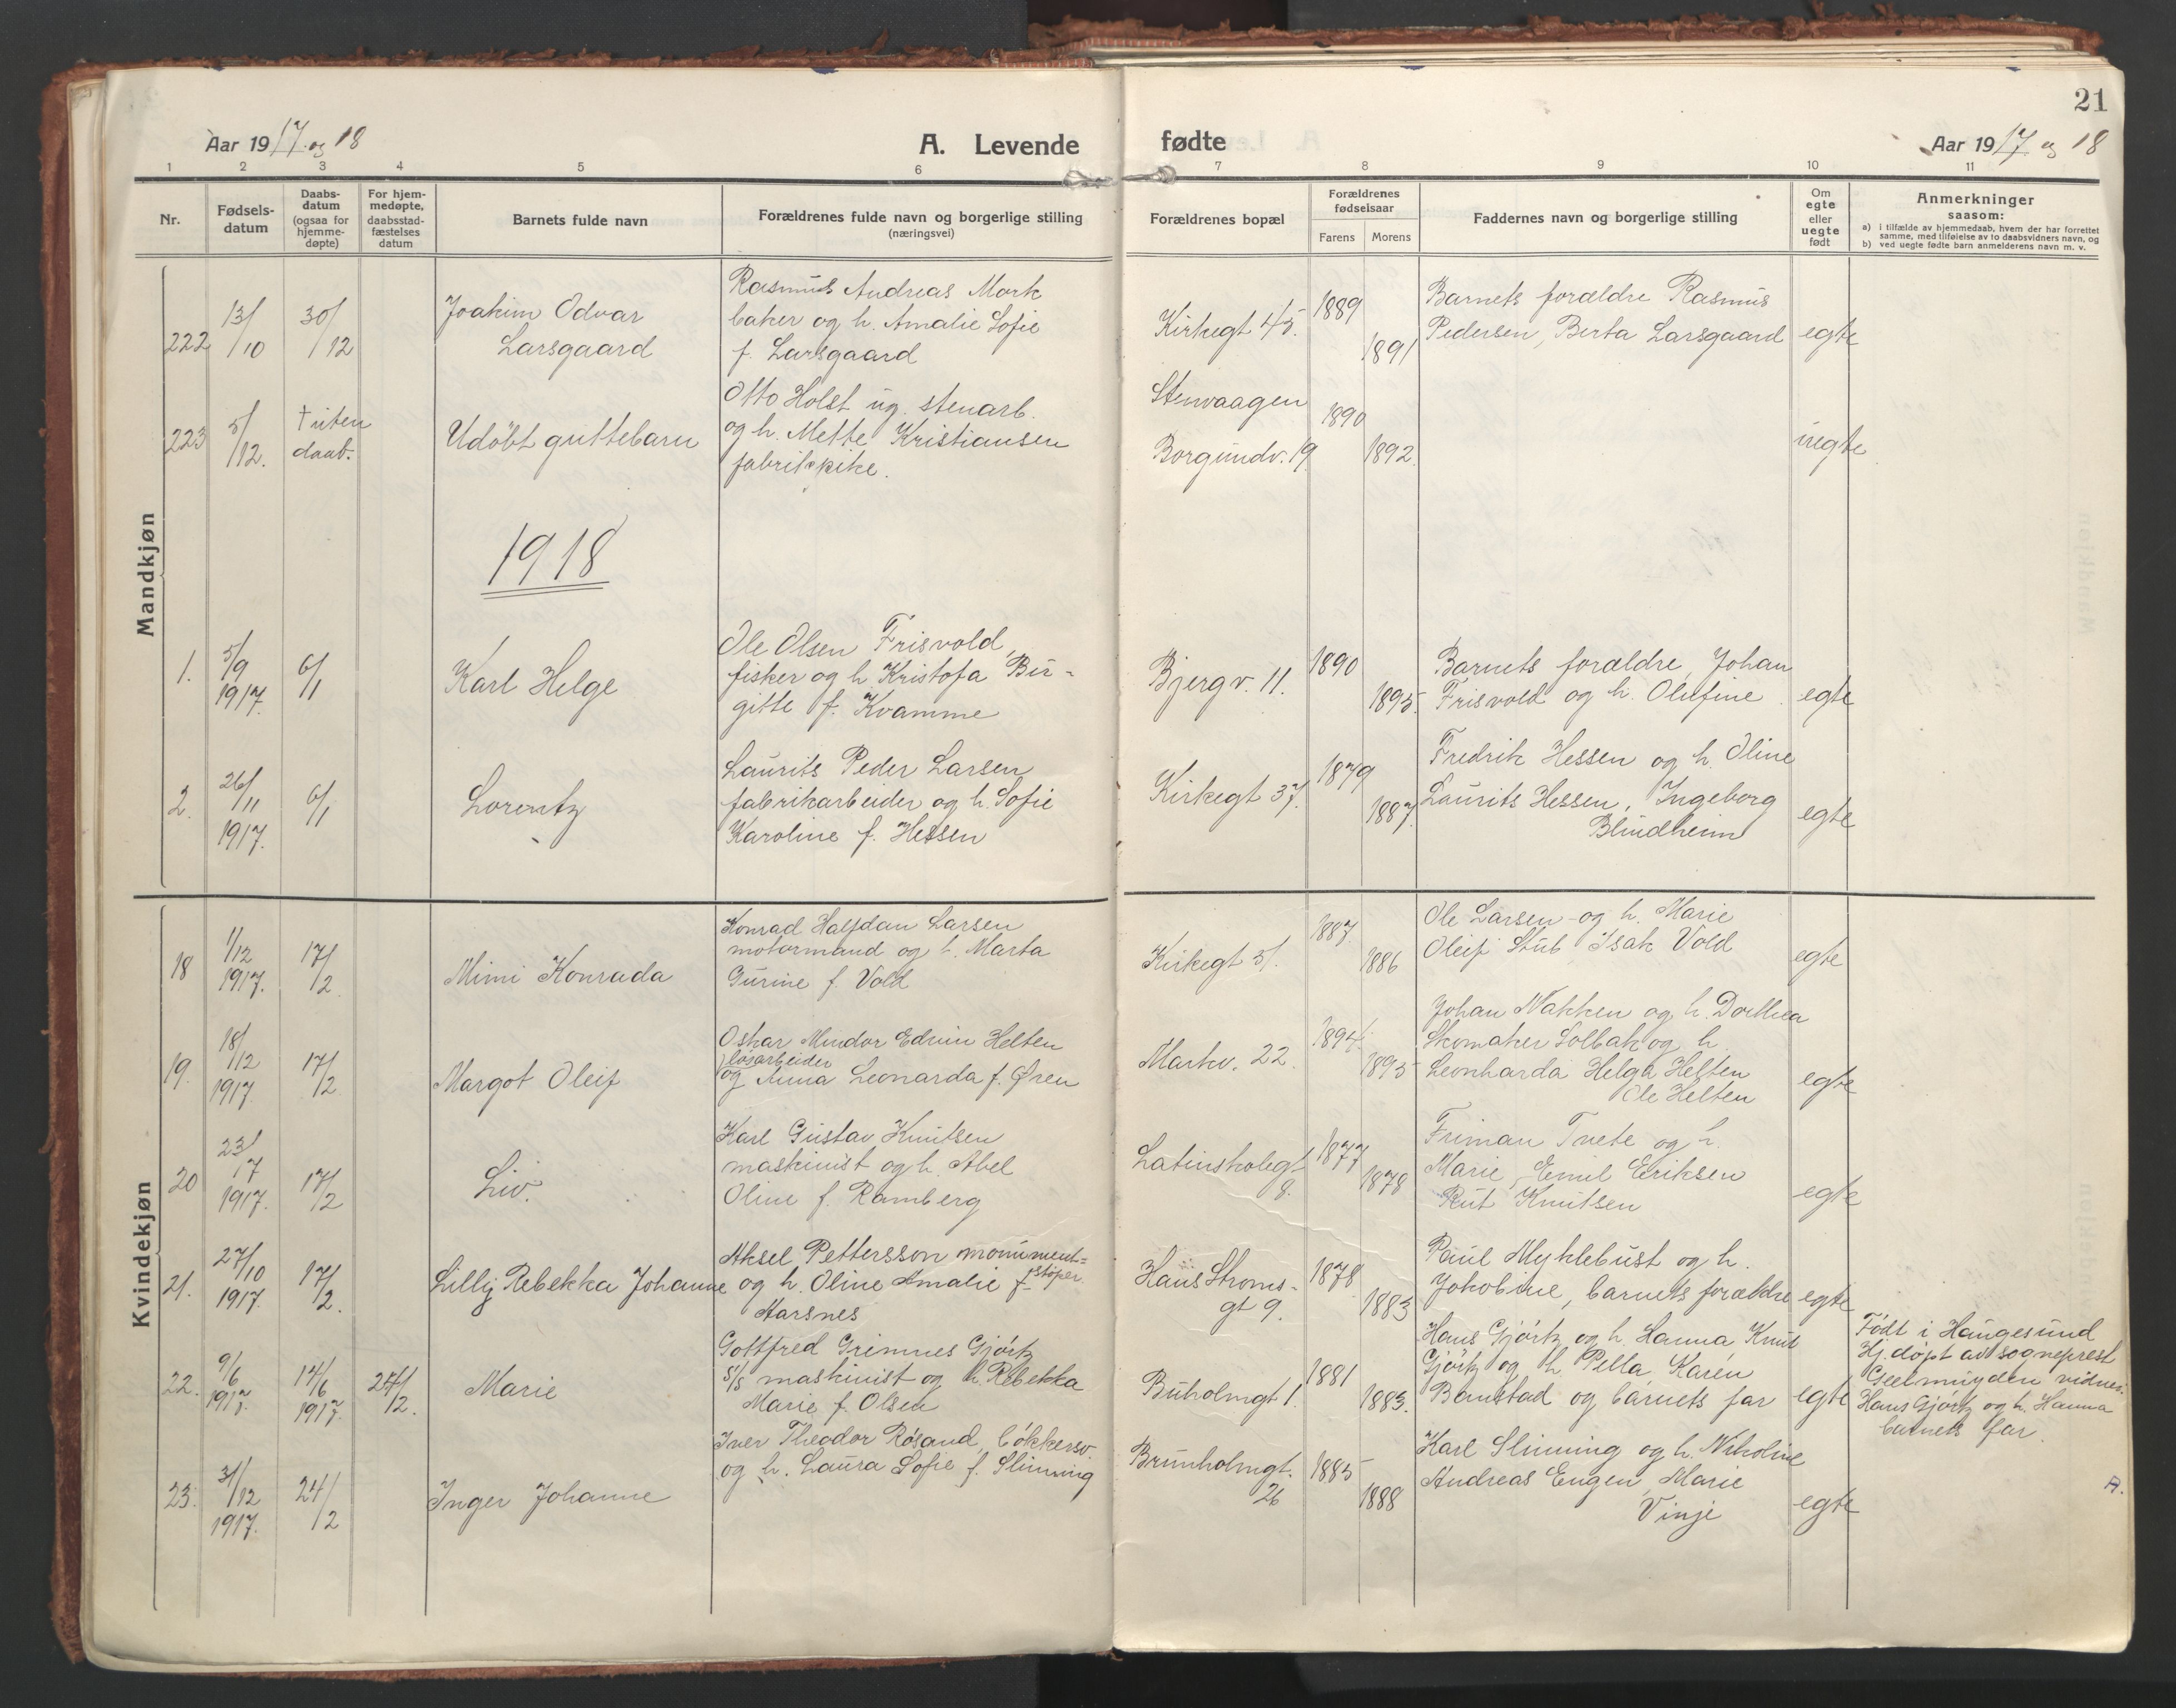 21
Aar 1917 og 18
A. Levende
fødte
Aar 1917 og 18
1 2 3 4 5 6 7 8 9 10 11
Nr.
Fødsels-
datum
Daabs-
datum
(ogsaa for
hjemme-
døpte)
For hjem-
medøpte,
daabsstad-
fæstelses
datum
Barnets fulde navn
Forældrenes fulde navn og borgerlige stilling
(næringsvei)
Forældrenes bopæl
Forældrenes
fødselsaar
Farens Morens
Faddernes navn og borgerlige stilling
Om
egte
eller
uegte
født
Anmerkninger
saasom:
a) i tilfælde av hjemmedaab, hvem der har forrettet
samme, med tilføielse av to daabsvidners navn, og
b) ved uegte fødte barn anmelderens navn m. v.
Mandkjøn
222
13/10
30/12
Joakim Odvar
Larsgaard
Rasmus Andreas Mork
baker og h. Amalie Sofie
f. Larsgaard
Kirkegt 45.
1889
1891
Barnets forældre Rasmus
Pedersen, Berta Larsgaard
egte
223
5/12.
† uten
daab.
Udöbt guttebarn
Otto Holst ug. stenarb.
og h. Mette Kristiansen
fabrikpike.
Stenvaagen
Borgundv. 19
1890
1892.
uegte
1918
1.
5/9
1917.
6/1
Karl Helge
Ole Olsen Frisvold,
fisker og h Kristofa Bir-
gitte f. Kvamme
Bjergv. 11.
1890
1895.
Barnets forældre, Johan
Frisvold og h. Olufine
egte
2.
26/11
1917.
6/1
Lorentz
Laurits Peder Larsen
fabrikarbeider og h. Sofie
Karoline f. Hessen
Kirkegt 37.
1879
1887.
Fredrik Hessen og h. Oline
Laurits Hessen, Ingeborg
Blindheim
egte
Kvindekjøn
18
1/12
1917.
17/2
Mimi Konrada
Konrad Halfdan Larsen
motormand og h. Marta
Gurine f. Vold
Kirkegt 51.
1887.
1886
Ole Larsen og h. Marie
Oleif Stub Isak Vold
egte
19.
18/12
1917
17/2
Margot Oleif
Oskar Mindor Edvin Helten
løsarbeider
og Anna Leonarda f. Øren
Markv. 22
1894.
1895
Johan Nakken og h. Dorthea
Skomaker Solbak og h.
Leonharda Helga Helten
Ole Helten
egte
20
23/7
1917.
17/2
Liv.
Karl Gustav Knutsen
maskinist og h. Abel
Oline f. Ramberg
Latinskolegt
8.
1877
1878
Friman Tvete og h.
Marie, Emil Eriksen
Rut Knutsen
egte
21.
27/10
1917.
17/2.
Lilly Rebekka Johanne
Aksel Pettersson monument-
støper
og h. Oline Amalie f.
Aarsnes
Hans Stroms-
gt 9.
1878
1883
Paul Myklebust og h.
Jakobine, barnets forældre
egte
22.
9/6
1917.
14/6
1917.
24/2.
Marie
Gottfred Grimnes Gjörtz
s/s maskinist og h Rebekka
Marie f. Olsen
Buholmgt 1.
1881
1883.
Hans Gjörtz og h. Hanna Knut
Gjörtz og h Pella, Karen
Bamstad og barnets far
egte
Födt i Haugesund
Hj. döpt av sogneprest
Geelmuyden vidner
Hans Gjörtz og h. Hanna
barnets far.
23.
31/12
1917.
24/2
Inger Johanne
Iver Theodor Rösand, bökkersv.
og h. Laura Sofie f. Slinning
Brunholmgt.
26
1885
1888
Karl Slinning og h. Nikoline
Andreas Engen, Marie
Vinje
egte
A.